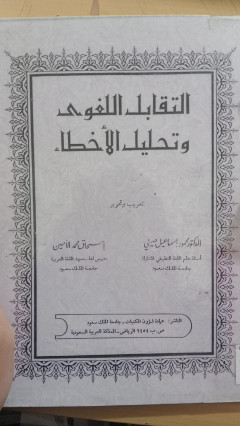 التقابل اللغوى
وتحليل الأخطاء
تعريب وتحرير
الدكتور محمود إسماعيل صيني
إسحاق محمد الأمين
أستاذ علم اللغة التطبيقي المشارك
جامعة الملك سعود
جامعة الملك سعود
الناشر: عمادة شؤون المكتبات - جامعة الملك سعود
ص.ب ٢٢٤٨٠ الرياض - المملكة العربية السعودية